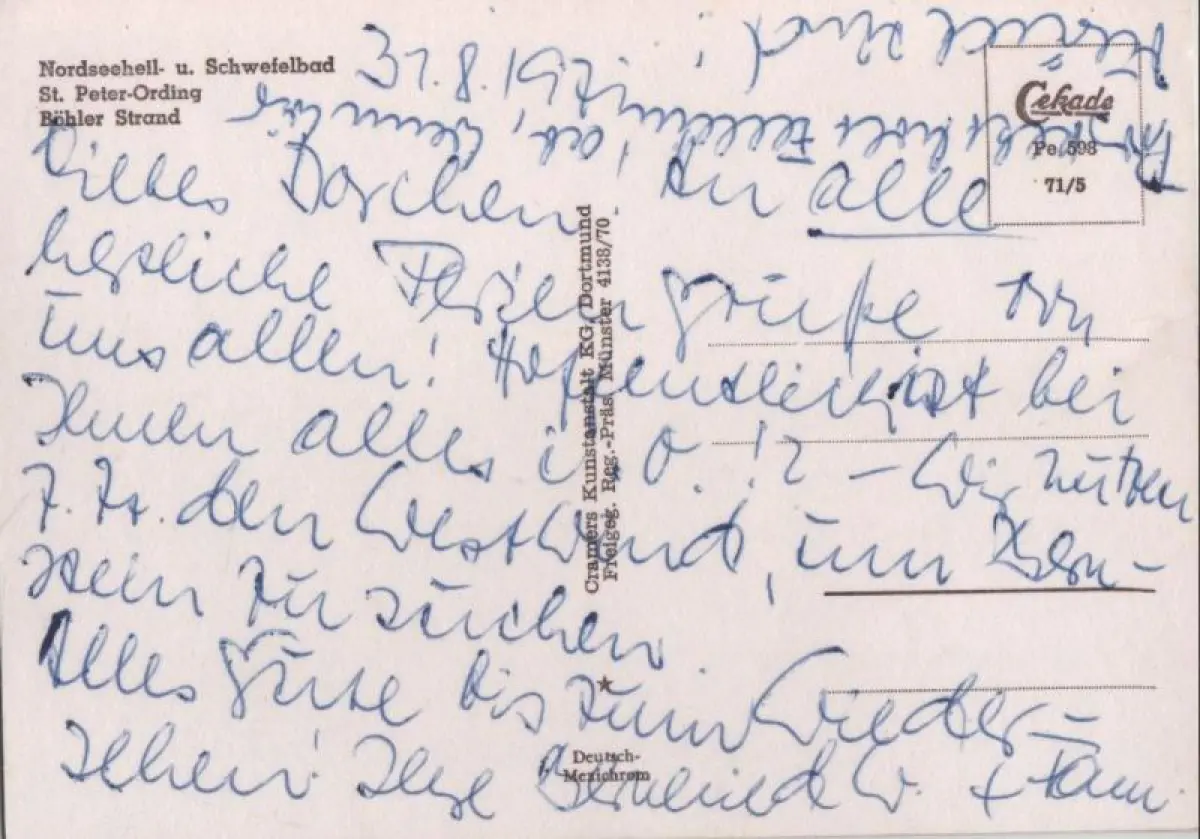 Nordseeheil- u. Schwefelbad
St. Peter-Ording
Böhler Strand
23.8.71
Liebes Dorchen! An alle
herzliche Feriengrüße von
uns allen! Hoffentlich ist bei
Ihnen alles i. O.!? – Wir nutzen
z. Zt. den Westwind, um Bern-
stein zu suchen.
Alles Gute bis zum Wieder-
sehen! Ihre W. + Fam.
ab, wenn wir
zurück sind!
Cekade
Pe 598
71/5
Cramers Kunstanstalt KG, Dortmund
Freigeg. Reg.-Präs. Münster 4138/70
Deutsch-
Mexichrom